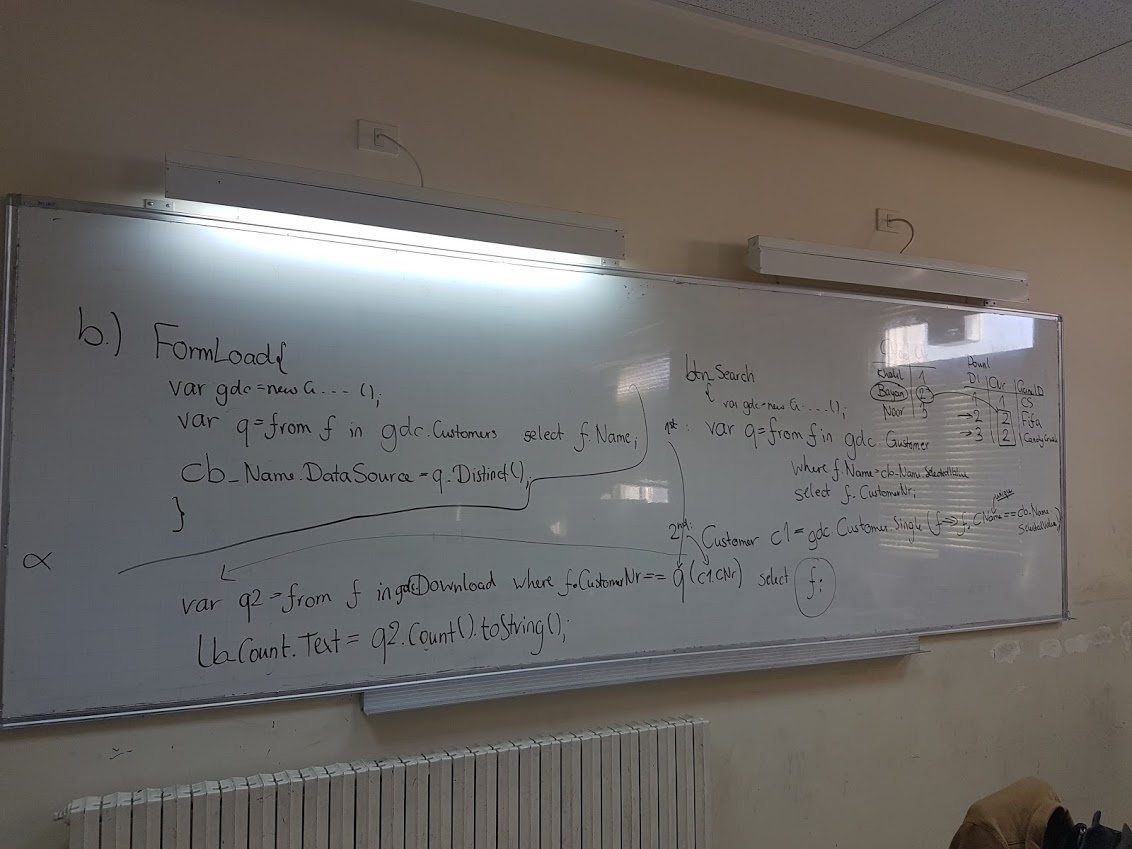 b.) FormLoad{
var gdc=new G....();
var q=from f in gdc.Customers select f.Name;
cb_Name.DataSource=q.Distinct();
}
α
btn_Search
{ var gdc=new G....();
1st: var q=from f in gdc Customer
where f.Name=cb_Name.SelectedValue
select f.CustomerNr;
2nd: Customer c1=gdc Customer.Single(f=>f.CName==cb_Name.
unique
SelectedValue)
var q2=from f in gdc.Download where f.CustomerNr==q(c1.CNr) select f;
lb_Count.Text=q2.Count().toString();
Khalil 1
Bayan 2
Noor 3
Downl
DI CNr GameID
1 1 CS
→2 2 Fifa
→3 2 CandyCrush